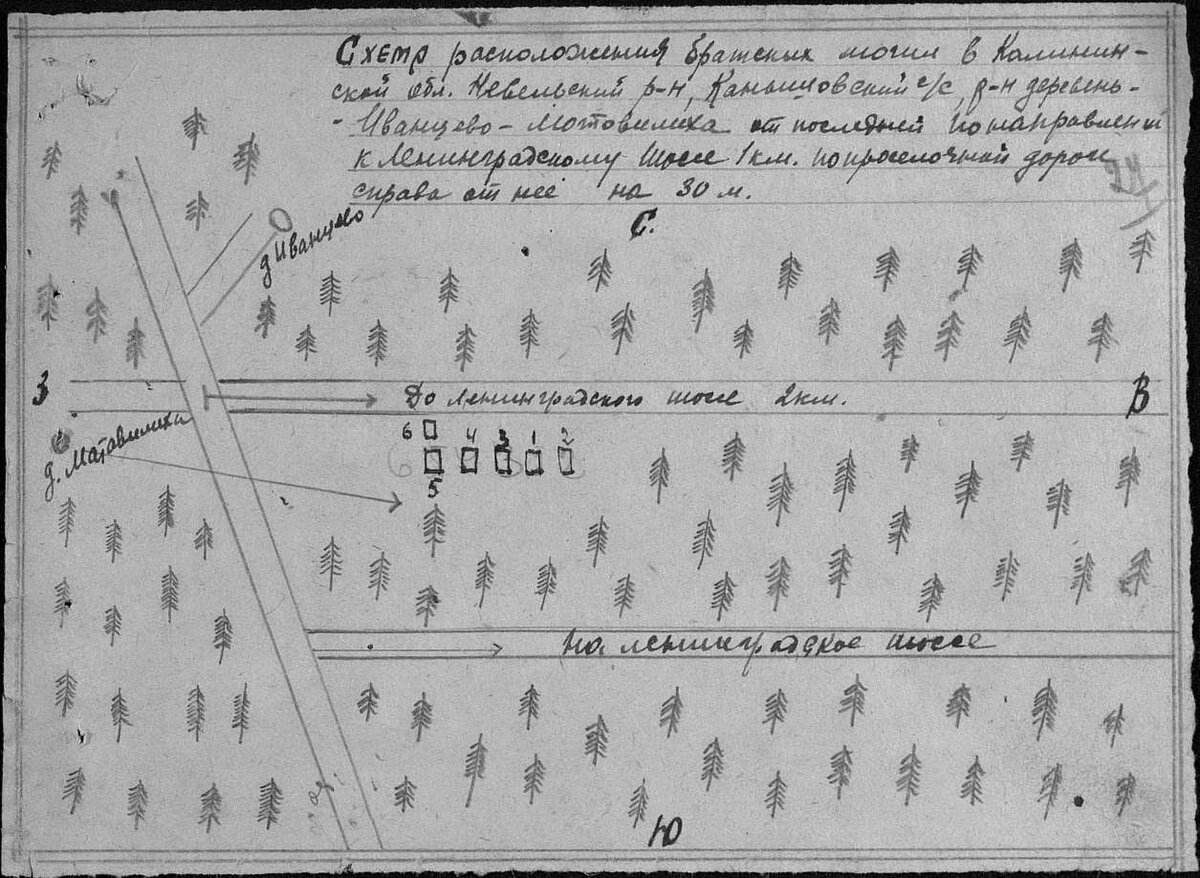 Схема расположения братских могил в Калинин-
ской обл. Невельский р-н, Каньшовский с/с, р-н деревень-
- Иванцево - Мотовилиха от последней по направлению
к Ленинградскому шоссе 1 км. по проселочной дороге
справа от нее на 30 м.
С.
д Иванцево
З
До Ленинградского шоссе 2 км.
В
д. Матавилиха
6
4 3 1 2
5
на ленинградкое шоссе
Ю